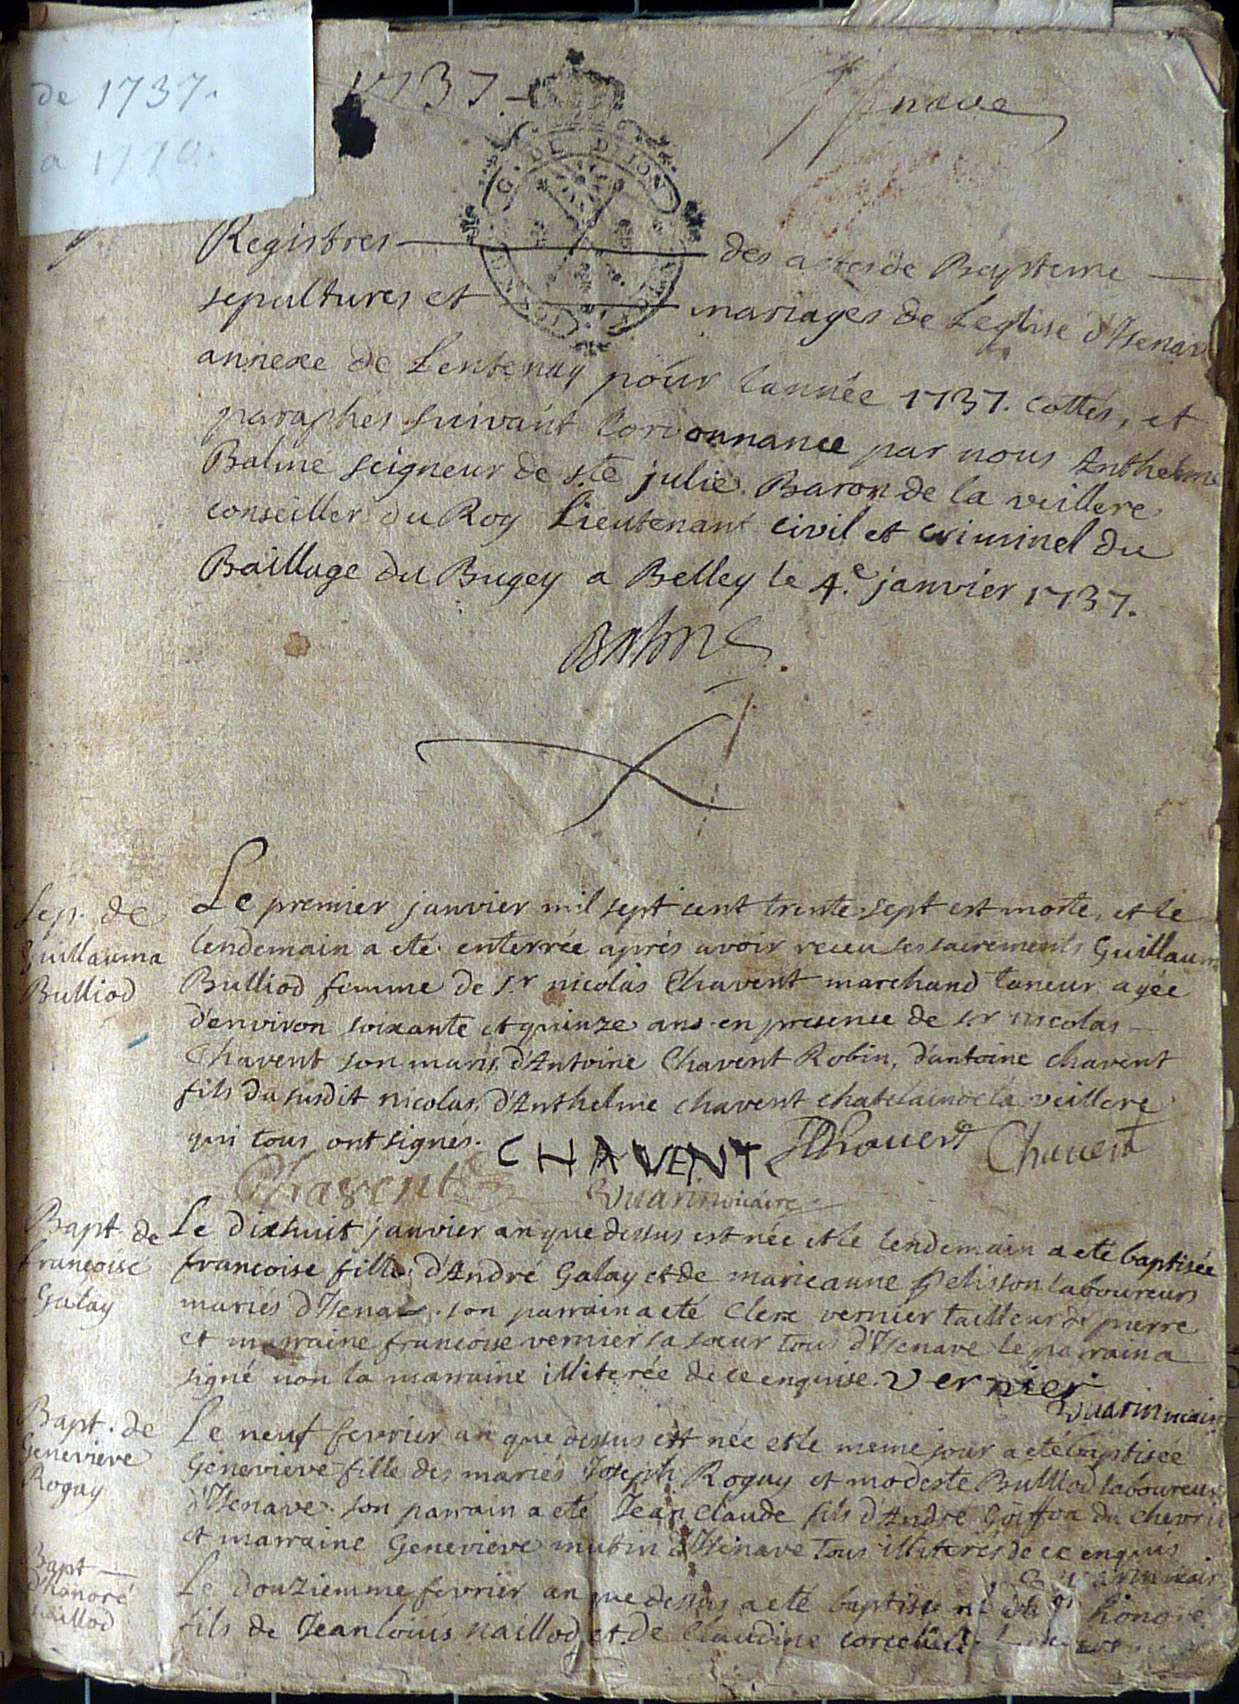 de 1737.
a 1770.
1737
Isenave
G. DE DIJON
Registres des actes de Bapteme
sepultures et mariages de Leglise d'Isenave
annexe de Lentenay pour lannée 1737. cottés, et
paraphés suivant lordonnance par nous Anthelme
Balme seigneur de ste julie. Baron de la veillere
conseiller du Roy Lieutenant civil et criminel du
Baillage du Bugey a Belley le 4.e janvier 1737.
Balme
Sep. de
Guillauma
Bulliod
Le premier janvier mil sept cent trente sept est morte, et le
lendemain a eté enterrée aprés avoir receu ses sacrements Guillauma
Bulliod femme de sr nicolas Chavent marchand taneur agée
d'environ soixante et quinze ans en presence de sr nicolas
Chavent son mari, d'Antoine Chavent Robin, d'antoine chavent
fils du susdit nicolas, d'Anthelme chavent chatelain de la veillere
qui tous ont signés. CHAVENT Chavent
Chavent Vuarin vicaire
Bapt. de
francoise
Galay
Le dixhuit janvier an que dessus est née et le lendemain a eté baptisée
francoise fille d'André Galay et de marieanne pelisson laboureurs
mariés d'Isenave. son parrain a eté Clere vernier tailleur de pierre
et marraine francoise vernier sa sœur tous d'Isenave le parrain a
signé non la marraine illiterée de ce enquise. vernier
Vuarin vicaire
Bapt. de
Genevieve
Roguy
Le neuf fevrier an que dessus est née et le meme jour a eté baptisée
Genevieve fille des mariés Joseph Roguy et modeste Bulliod laboureurs
d'Isenave. son parrain a eté Jean claude fils d'André Goiffon du chevril
et marraine Genevieve mutin d'Isenave tous illiterés de ce enquis
Vuarin vicaire
Bapt
d'honoré
naillod
Le douziemme fevrier an que dessus a eté baptisé honoré
fils de Jean louis naillod et de Claudine